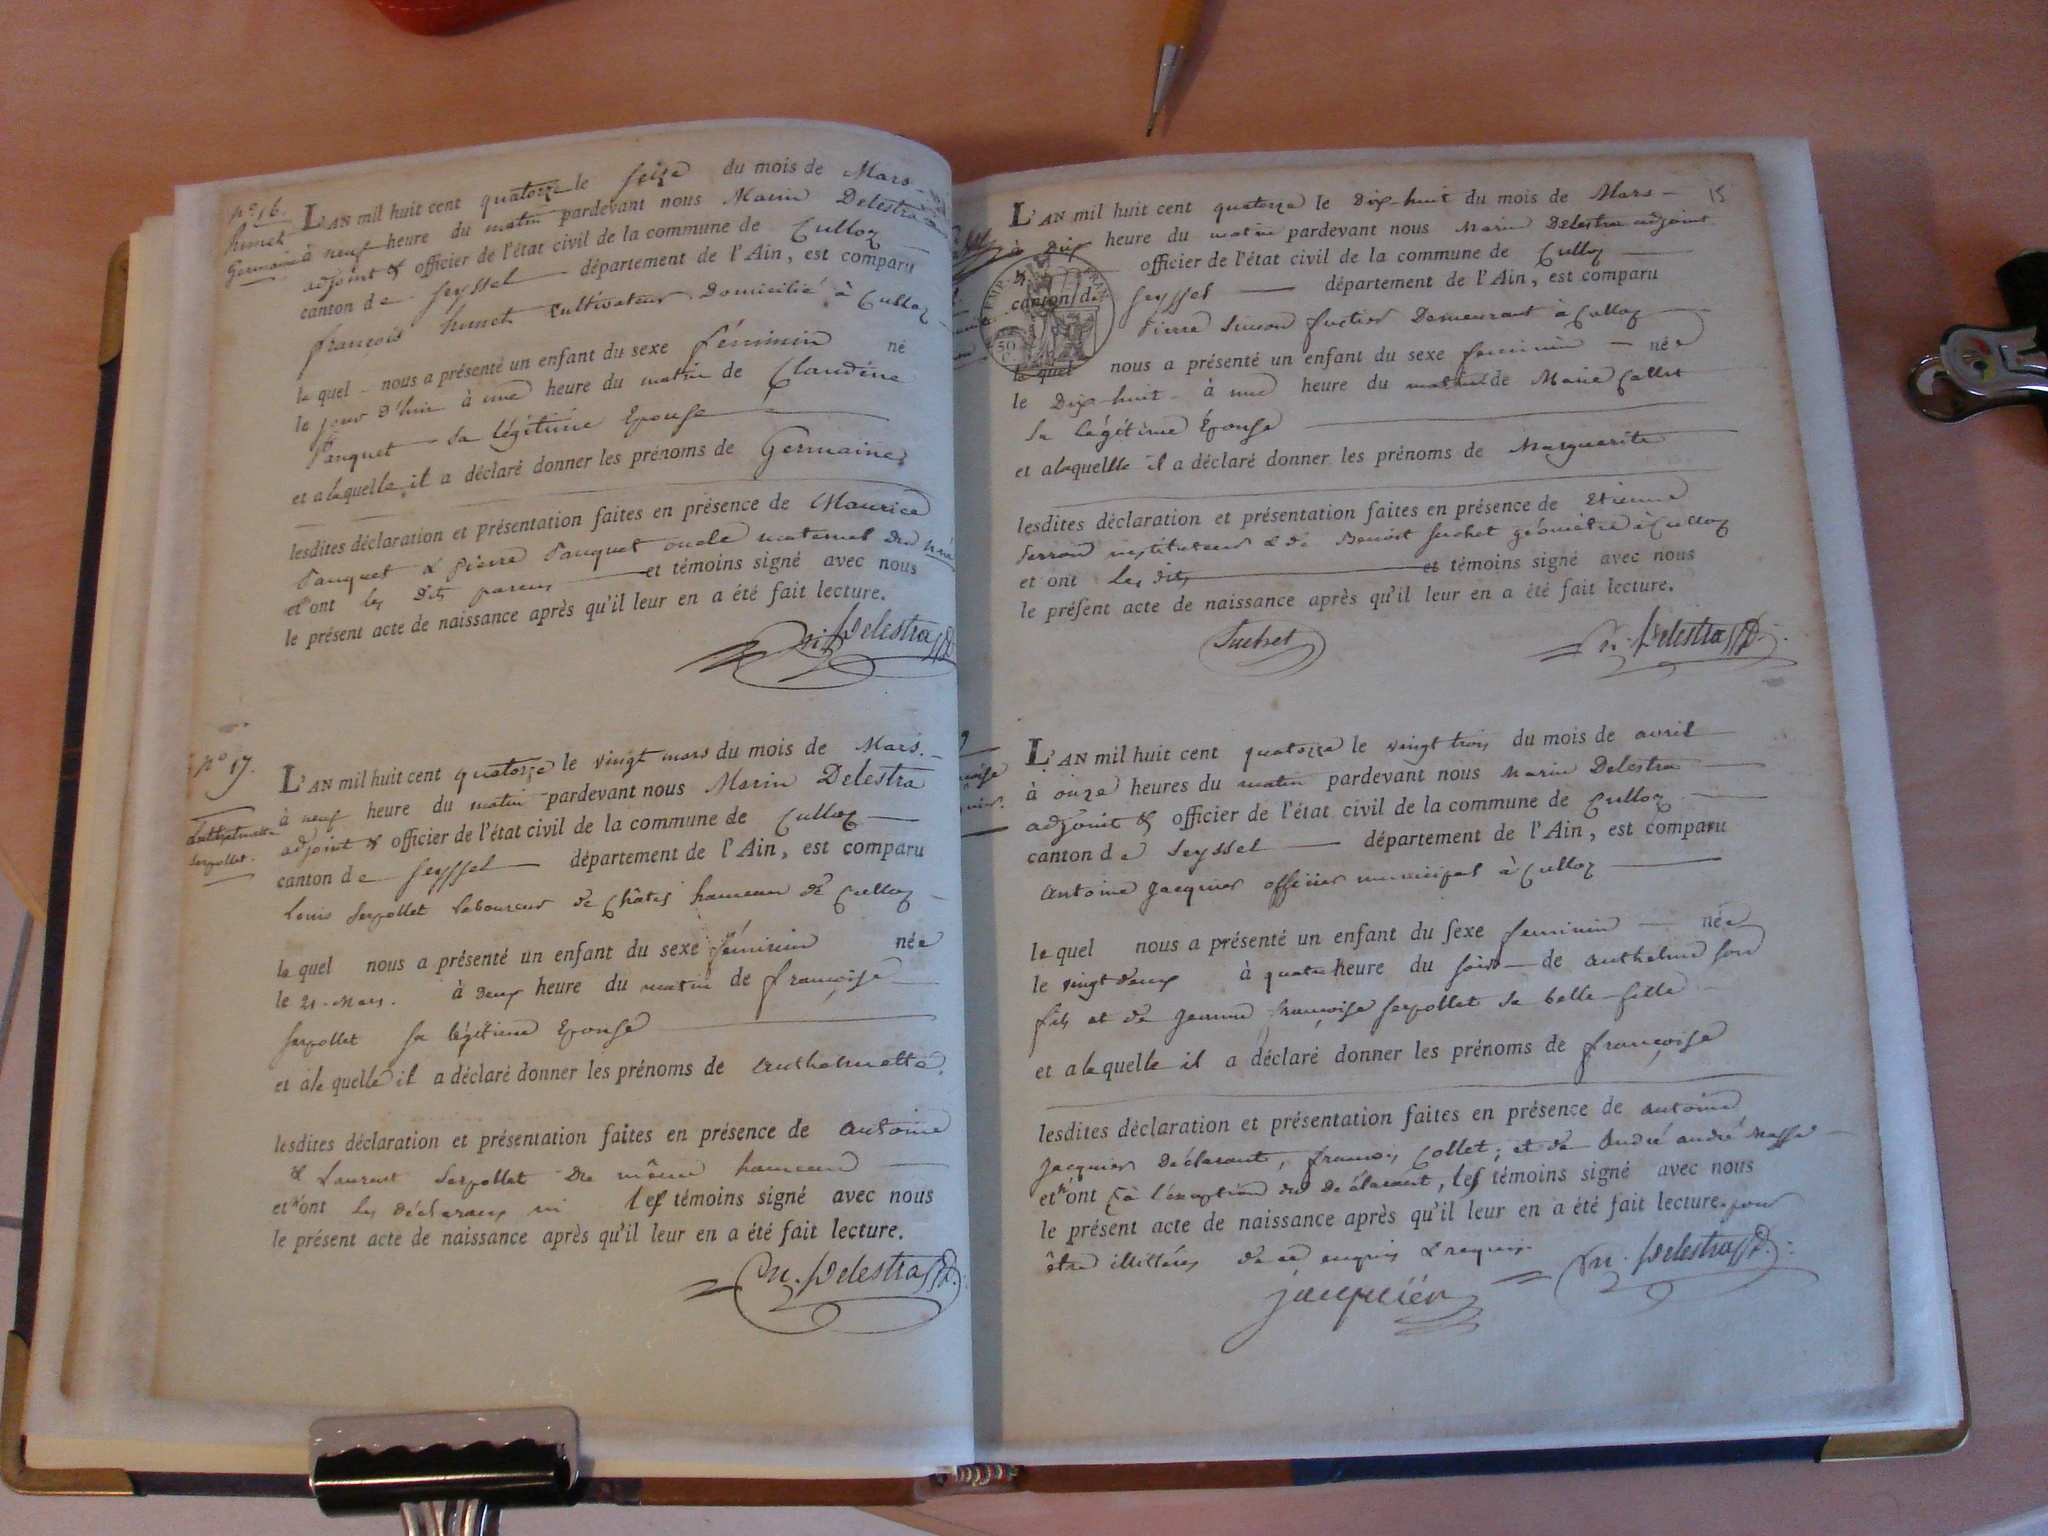 nº 16.
Germaine
L'AN mil huit cent quatorze le seize du mois de Mars
à neuf heure du matin pardevant nous Marin Delestra
adjoint & officier de l'état civil de la commune de Culloz
canton de Seyssel département de l'Ain, est comparu
françois cultivateur Domicilié à Culloz
le quel nous a présenté un enfant du sexe féminin né
le jour d'hui à une heure du matin de Claudine
Panquet sa légitime Epouse
et a laquelle il a déclaré donner les prénoms de Germaine
lesdites déclaration et présentation faites en présence de Maurice
Panquet & Pierre Panquet oncle maternel
et ont les dits et témoins signé avec nous
le présent acte de naissance après qu'il leur en a été fait lecture.
Delestra
nº 17.
Anthelmette
Serpollet.
L'AN mil huit cent quatorze le vingt mars du mois de Mars.
à neuf heure du matin pardevant nous Marin Delestra
adjoint & officier de l'état civil de la commune de Culloz
canton de Seyssel département de l'Ain, est comparu
Louis Serpollet Laboureur de Châtel hameau de Culloz
le quel nous a présenté un enfant du sexe féminin née
le 21. Mars. à deux heure du matin de françoise
Serpollet sa légitime Epouse
et a la quelle il a déclaré donner les prénoms de Anthelmette.
lesdites déclaration et présentation faites en présence de Antoine
& Laurent Serpollet du même hameau
et n'ont les déclarans ni les témoins signé avec nous
le présent acte de naissance après qu'il leur en a été fait lecture.
m. Delestra
15
L'AN mil huit cent quatorze le Dix-huit du mois de Mars
à Dix heure du matin pardevant nous Marin Delestra adjoint
& officier de l'état civil de la commune de Culloz
canton de Seyssel département de l'Ain, est comparu
Pierre Simon Demeurant à Culloz
le quel nous a présenté un enfant du sexe feminin née
le Dix-huit à une heure du matin de Marie Collet
sa légitime Epouse
et a laquelle il a déclaré donner les prénoms de Marguerite
lesdites déclaration et présentation faites en présence de Etienne
instituteur & de Benoit Suchet géomètre à Culloz
et ont les dits et témoins signé avec nous
le présent acte de naissance après qu'il leur en a été fait lecture.
Suchet
m. Delestra
L'AN mil huit cent quatorze le vingt trois du mois de avril
à onze heures du matin pardevant nous Marin Delestra
adjoint & officier de l'état civil de la commune de Culloz
canton de Seyssel département de l'Ain, est comparu
Antoine Jacquier officier municipal à Culloz
le quel nous a présenté un enfant du sexe feminin née
le vingt deux à quatre heure du soir de Anthelme son
fils et de Jeanne françoise Serpollet sa belle-fille
et a laquelle il a déclaré donner les prénoms de françoise
lesdites déclaration et présentation faites en présence de Antoine
Jacquier Déclarant, françois Collet, et de André andré Masse
et n'ont (à l'exception du déclarant, les témoins signé avec nous
le présent acte de naissance après qu'il leur en a été fait lecture. pour
être illittérés de ce enquis & requis.
jacquier
m. Delestra